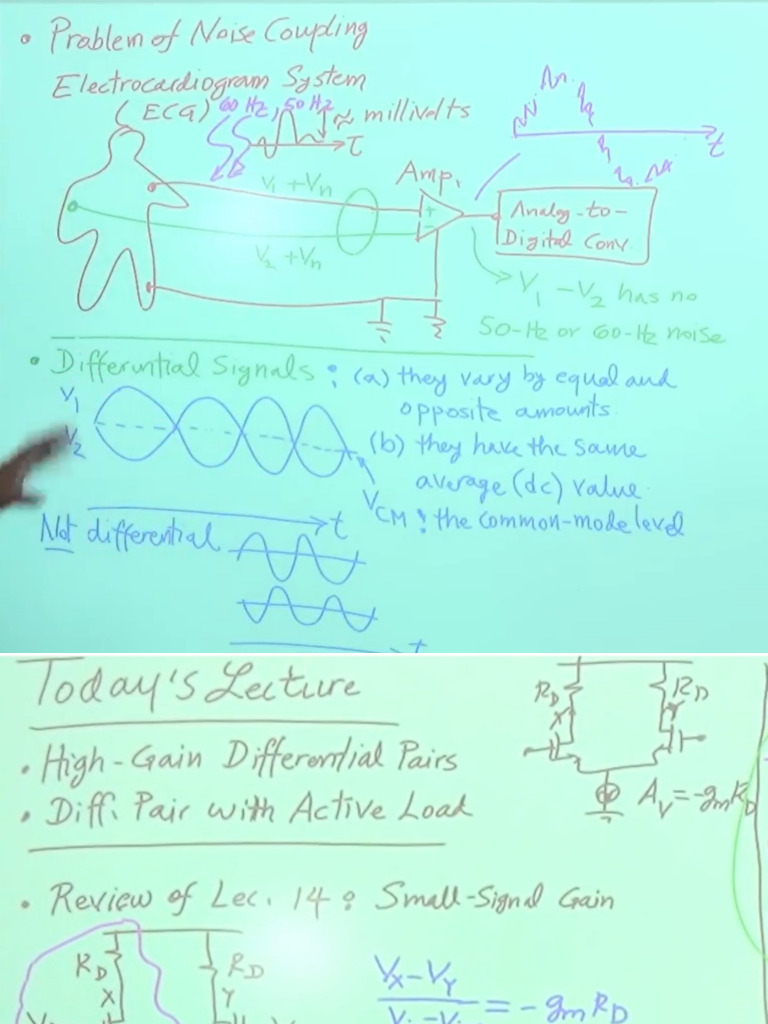 • Problem of Noise Coupling
Electrocardiogram System
(ECG) 60 Hz, 50 Hz
≈ millivolts
t
V1 + Vn
Amp.
+
−
Analog-to-
Digital Conv.
t
V2 + Vn
V1 − V2 has no
50-Hz or 60-Hz noise
• Differential Signals : (a) they vary by equal and
opposite amounts.
V1
V2
(b) they have the same
average (dc) value.
VCM : the common-mode level
t
Not differential
t
Today's Lecture
RD RD
X Y
• High-Gain Differential Pairs
• Diff. Pair with Active Load
AV = -gmRD
• Review of Lec. 14 : Small-Signal Gain
RD RD
X Y
VX − VY
= − gmRD